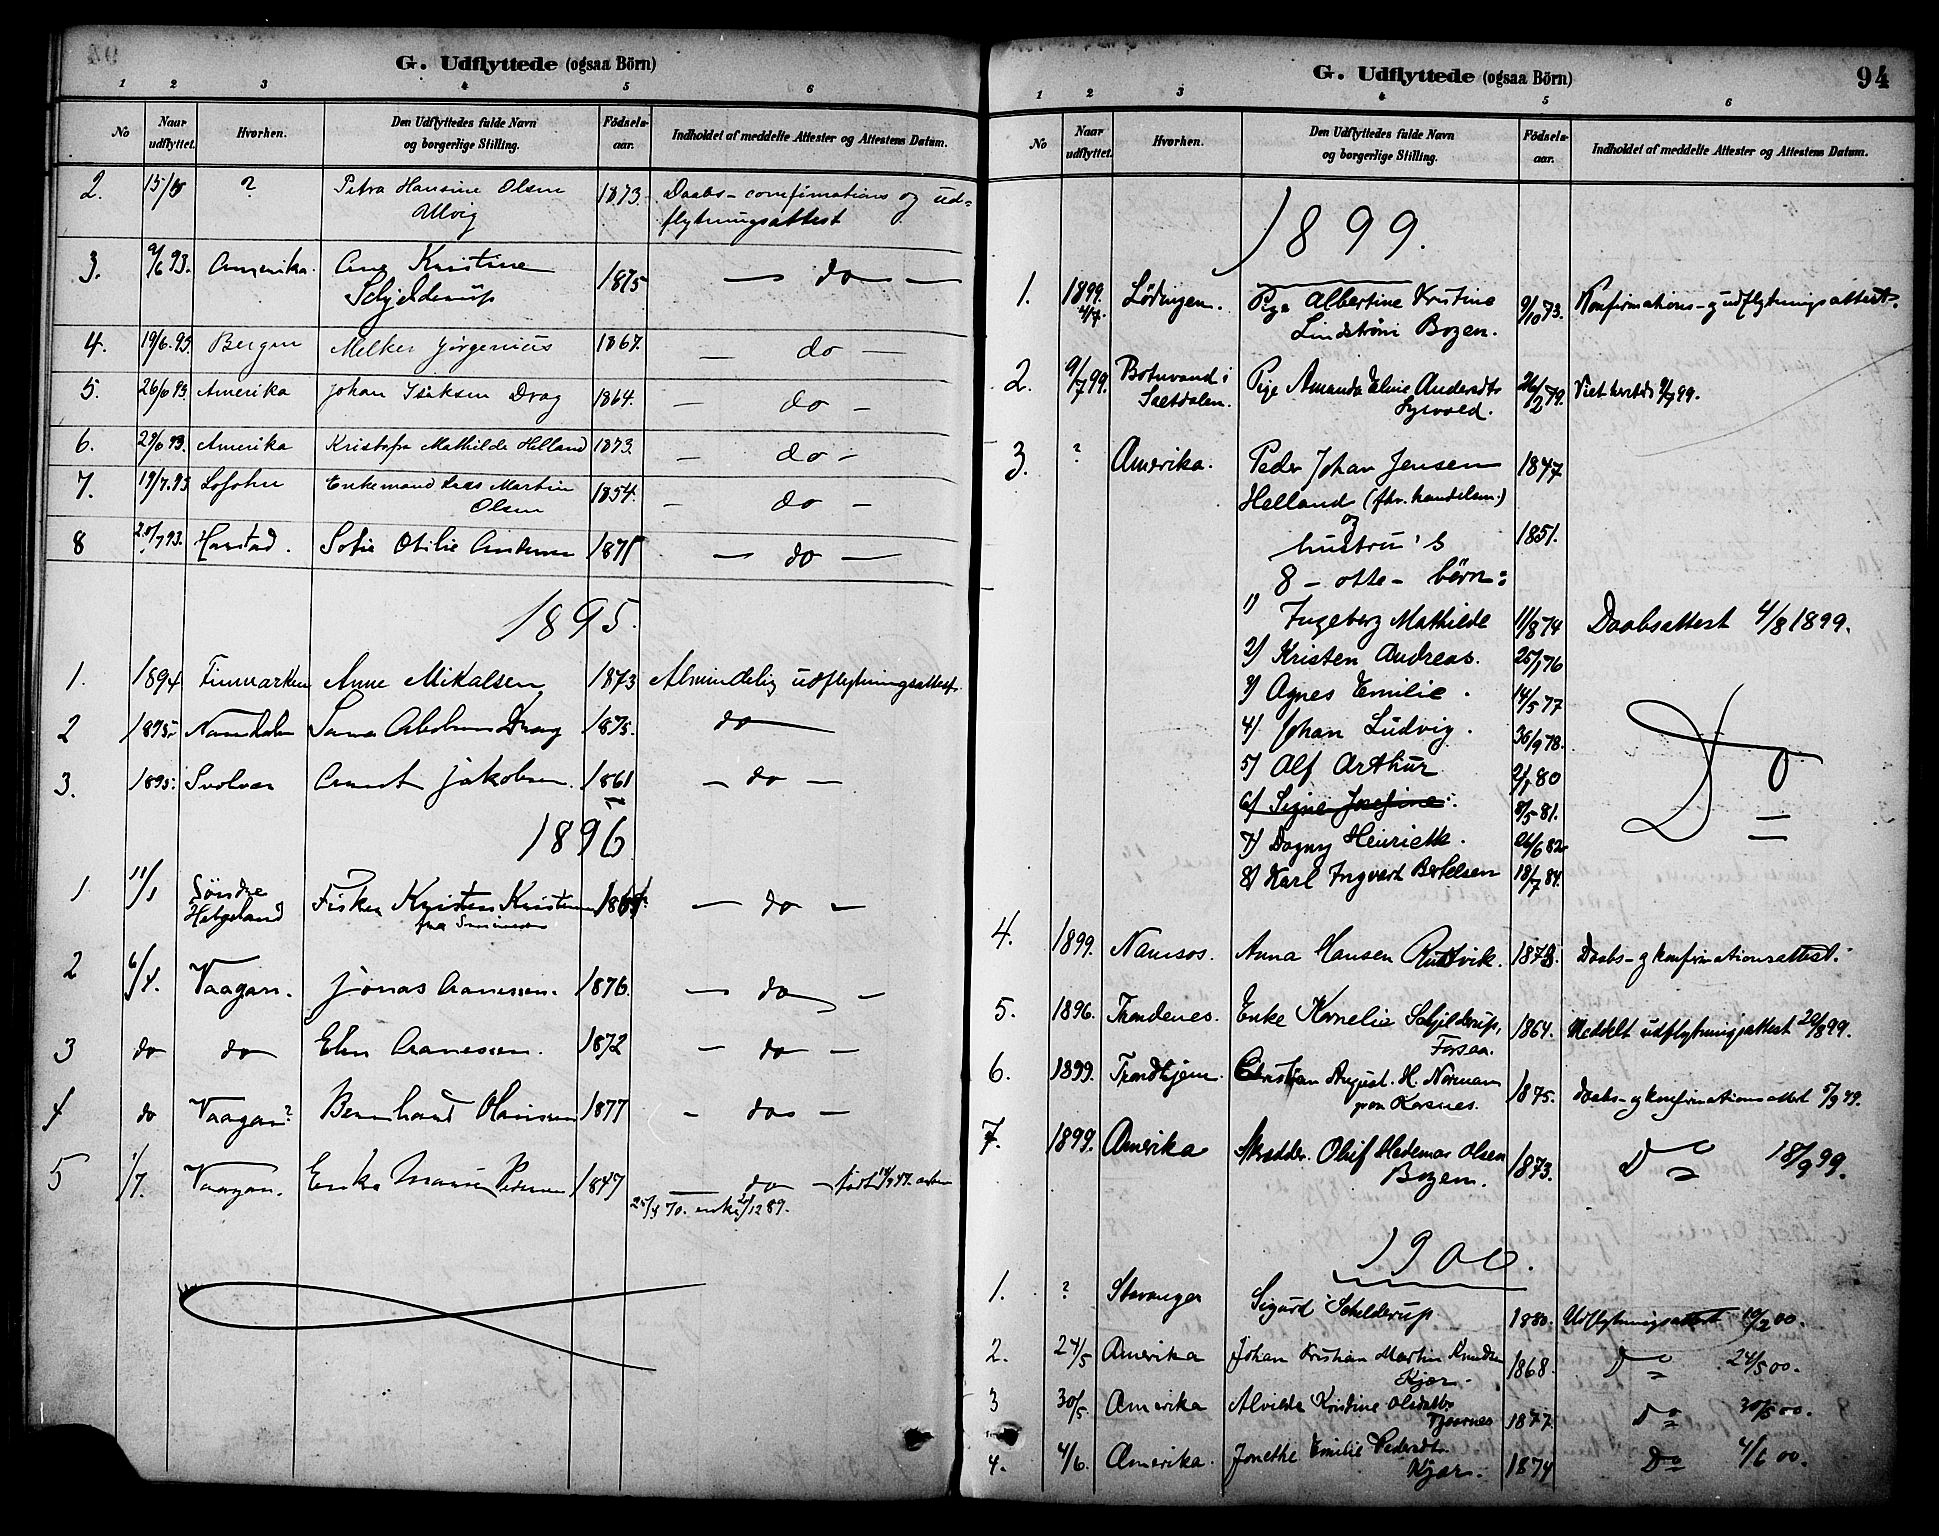 G. Udflyttede (ogsaa Börn)
1 2 3 4 5 6
No Naar udflyttet. Hvorhen. Den Udflyttedes fulde Navn og borgerlige Stilling. Födselsaar. Indholdet af meddelte Attester og Attestens Datum.
2. ? Petra Hansine Olsen 1873. Daabs- confirmations og ud=
Ulvig flytningsattest
3. 9/6 93. Amerika. Ane Kristine 1875 — do —
Schjelderup
4. 19/6. 93. Bergen Melker Jörgenius 1867. — do —
5. 26/6 93 Amerika Johan Isaksen Drag 1864. — do —
6. 29/6 93. Amerika Mathilde Helland 1873. — do —
7. 19/7. 93 Enkemand Martin 1854. — do —
Olsen
8 20/7 93. Harstad. Sofie Otilie 1875 — do —
1895.
1. 1894 Finmarken Anne Mikalsen 1873 Almindelig udflytningsattest.
2 1895. Namdalen Drag 1875. do —
3. 1895. Svolvær Arnt Jakobsen. 1861 — do —
1896
1 11/1 Söndre Fisker Kristen Kristensen — do —
Helgeland fra
2 6/4. Vaagan. Jonas Aanessen. 1876. — do —
3 do do Elen Aanessen. 1872 — do —
4 do Vaagan? Bernhard Hansen 1877 — do —
5 1/7. Vaagan. Enke Pedersen 1847 — do — födt
25/4 70. enke 21/12 89.
G. Udflyttede (ogsaa Börn) 94
1 2 3 4 5 6
No Naar udflyttet. Hvorhen. Den Udflyttedes fulde Navn og borgerlige Stilling. Födselsaar. Indholdet af meddelte Attester og Attestens Datum.
1899.
1. 1899. Lödingen. Pige Albertine Kristine 9/10 73. Konfirmations- g udflytningsattest.
4/7. Lindström Bogen.
2. 9/7 99. Botnvand i Pige Amanda Eline Andersdtr 26/2 79. 9/7 99.
Saltdalen.
3. ? Amerika. Peder Johan Jensen 1847
Helland (fhv. handelsm.)
og
hustru's 1851.
8 – otte – börn:
1) Ingeborg Mathilde 11/8 74 Daabsattest 4/8 1899.
2) Kristen Andreas. 25/1 76
3) Agnes Emilie. 14/5 77 Do
4) Johan Ludvig. 30/9 78.
5) Alf Arthur 2/1 80
6) Signe Josefine. 8/5 81.
7) Dagny Henriette. 26/6 82
8) Karl Ingvart Bertelsen 18/7 84.
4. 1899. Namsos. Anna Hansen 1873 Daabs- g konfirmationsattest.
5. 1896. Trondenes. Enke Kornelie Schjelderup, 1864. Meddelt udflytningsattest 29/8 99.
Forsaa.
6. 1899. Trondhjem. Christian August. H. Normann 1875. Daabs- g konfirmationsattest 5/9 99.
Korsnes.
7. 1899. Amerika Skrædder. Oluf Hedemar Olsen 1873. Do 18/9 99.
Bogen.
1900.
1. ? Stavanger Sigurd Schelderup 1880. Udflytningsattest 10/2 00.
2. 24/5 Amerika Johan Kristian Martin Knudsen 1868. Do 24/5 00.
Kjær.
3 30/5 Amerika Alvilde Kristine Olsdatter 1877. Do 30/5 00.
4. 4/6. Amerika. Jonethe Emilie Pedersdtr. 1874 Do 4/6 00.
Kjær.